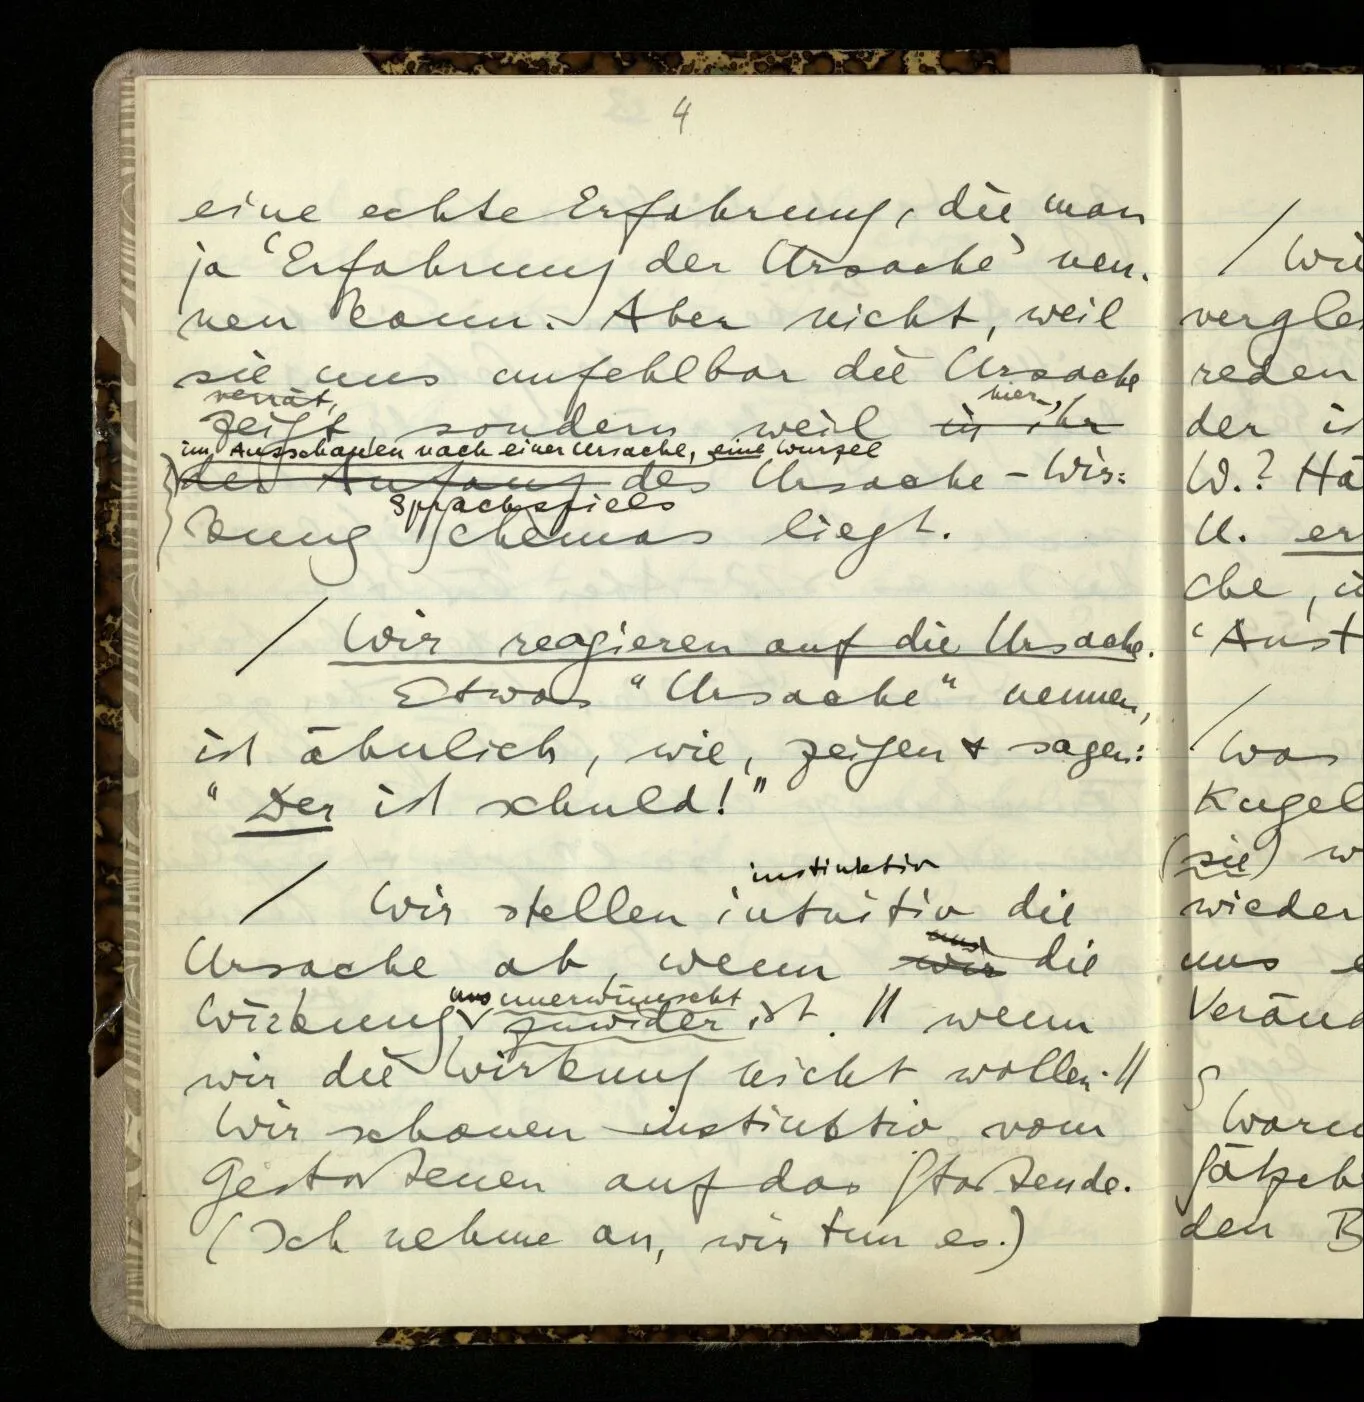 4
eine echte Erfahrung, die man
ja ‘Erfahrung der Ursache’ nen-
nen kann. Aber nicht, weil
sie uns unfehlbar die Ursache
verrät,
zeigt sondern weil in ihr
hier,
im Ausschauen nach einer Ursache, eine Wurzel
der Anfang des Ursache-Wir=
Sprachspiels
kung Schemas liegt.
/ Wir reagieren auf die Ursache.
Etwas “Ursache” nennen,
ist ähnlich, wie, zeigen & sagen:
“Der ist schuld!”
instinktiv
/ Wir stellen intuitiv die
uns
Ursache ab, wenn wir die
uns unerwünscht
Wirkung zuwider ist. // wenn
wir die Wirkung nicht wollen. //
Wir schauen instinktiv vom
Gestoßenen auf das Stoßende.
(Ich nehme an, wir tun es.)
/ Wie
vergle
reden
der is
W.? Ha
U. er
che,
‘Aust
/ Was
Kugel
(sie) w
wieder
uns e
Veränd
Waru
den B